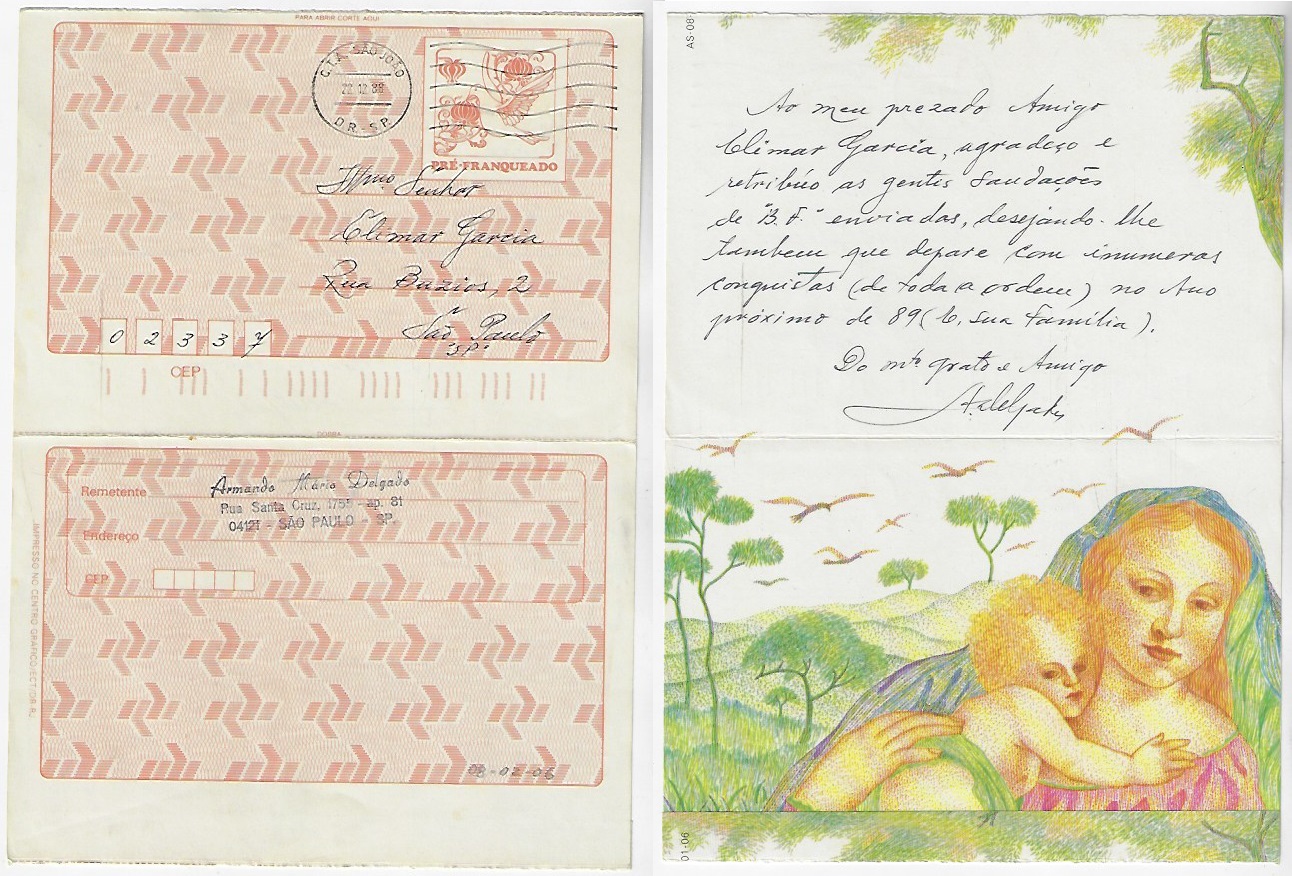 PARA ABRIR CORTE AQUI
C.T.A. SÃO JOÃO
22 12 88
DR-SP
PRÉ-FRANQUEADO
Ilmo. Senhor
Elimar Garcia
Rua Buzios, 2
São Paulo
"SP"
0 2 3 3 7
CEP
DOBRA
Remetente
Armando Mário Delgado
Rua Santa Cruz, 1755 - ap. 81
04121 - SÃO PAULO - SP.
Endereço
CEP
IMPRESSO NO CENTRO GRÁFICO/ECT/DR RJ
08-02-06
AS-08
Ao meu prezado Amigo
Elimar Garcia, agradeço e
retribúo as gentis saudações
de "B.F." enviadas, desejando-lhe
tambem que depare com inumeras
conquistas (de toda a ordem) no Ano
próximo de 89 (E, sua Família).
Do mto grato e Amigo
A. Delgado
01-06